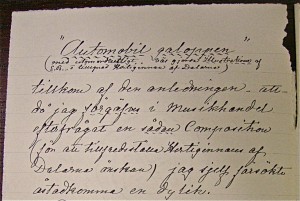 "Automobil galoppen"
(med
tillegnad Hertiginnan af Dalarne)
tillkom af den anledningen att
då jag förgäfves i Musikhandel
efterfrågat en sådan Composition
(för att tillfredsställa Hertiginnans af
Dalarne önskan) jag sjelf försökte
åstadkomma en dylik.